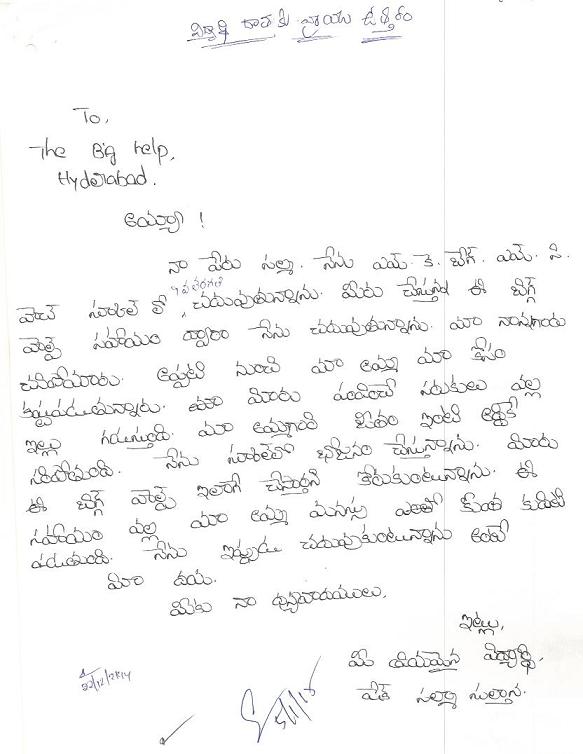 విద్యార్థి దాతకు వ్రాయు ఉత్తరం
To,
The Big Help,
Hyderabad.
అయ్యా !
నా పేరు సల్మా. నేను ఎమ్. కె. బేగ్. ఎమ్. సి.
హై స్కూల్ లో 9వ తరగతి చదువుతున్నాను. మీరు చేస్తున్న ఈ బిగ్గ్
హెల్ప్ సహాయం ద్వారా నేను చదువుతున్నాను. మా నాన్నగారు
చనిపోయారు. అప్పటి నుంచి మా అమ్మ మా కోసం
కష్టపడుతున్నారు. మా మీరు పంపించే సరుకులు వల్ల
ఇల్లు గడుస్తుంది. మా అమ్మగారి జీతం ఇంటి అద్దెకే
సరిపోతుంది. నేను స్కూల్‌లో భోజనం చేస్తున్నాను. మీరు
ఈ బిగ్గ్ హెల్ప్ ఇలాగే చేస్తారని కోరుకుంటున్నాను. ఈ
సహాయం వల్ల మా అమ్మ మనస్సు ఎంతో కొంత కుదుట
పడుతుంది. నేను ఇప్పుడు చదువుకుంటున్నాను అంటే
మీ దయ.
మీకు నా ధన్యవాదములు.
ఇట్లు,
మీ ప్రియమైన విద్యార్థి,
షేక్ సల్మా సుల్తానా.
22/12/2K14